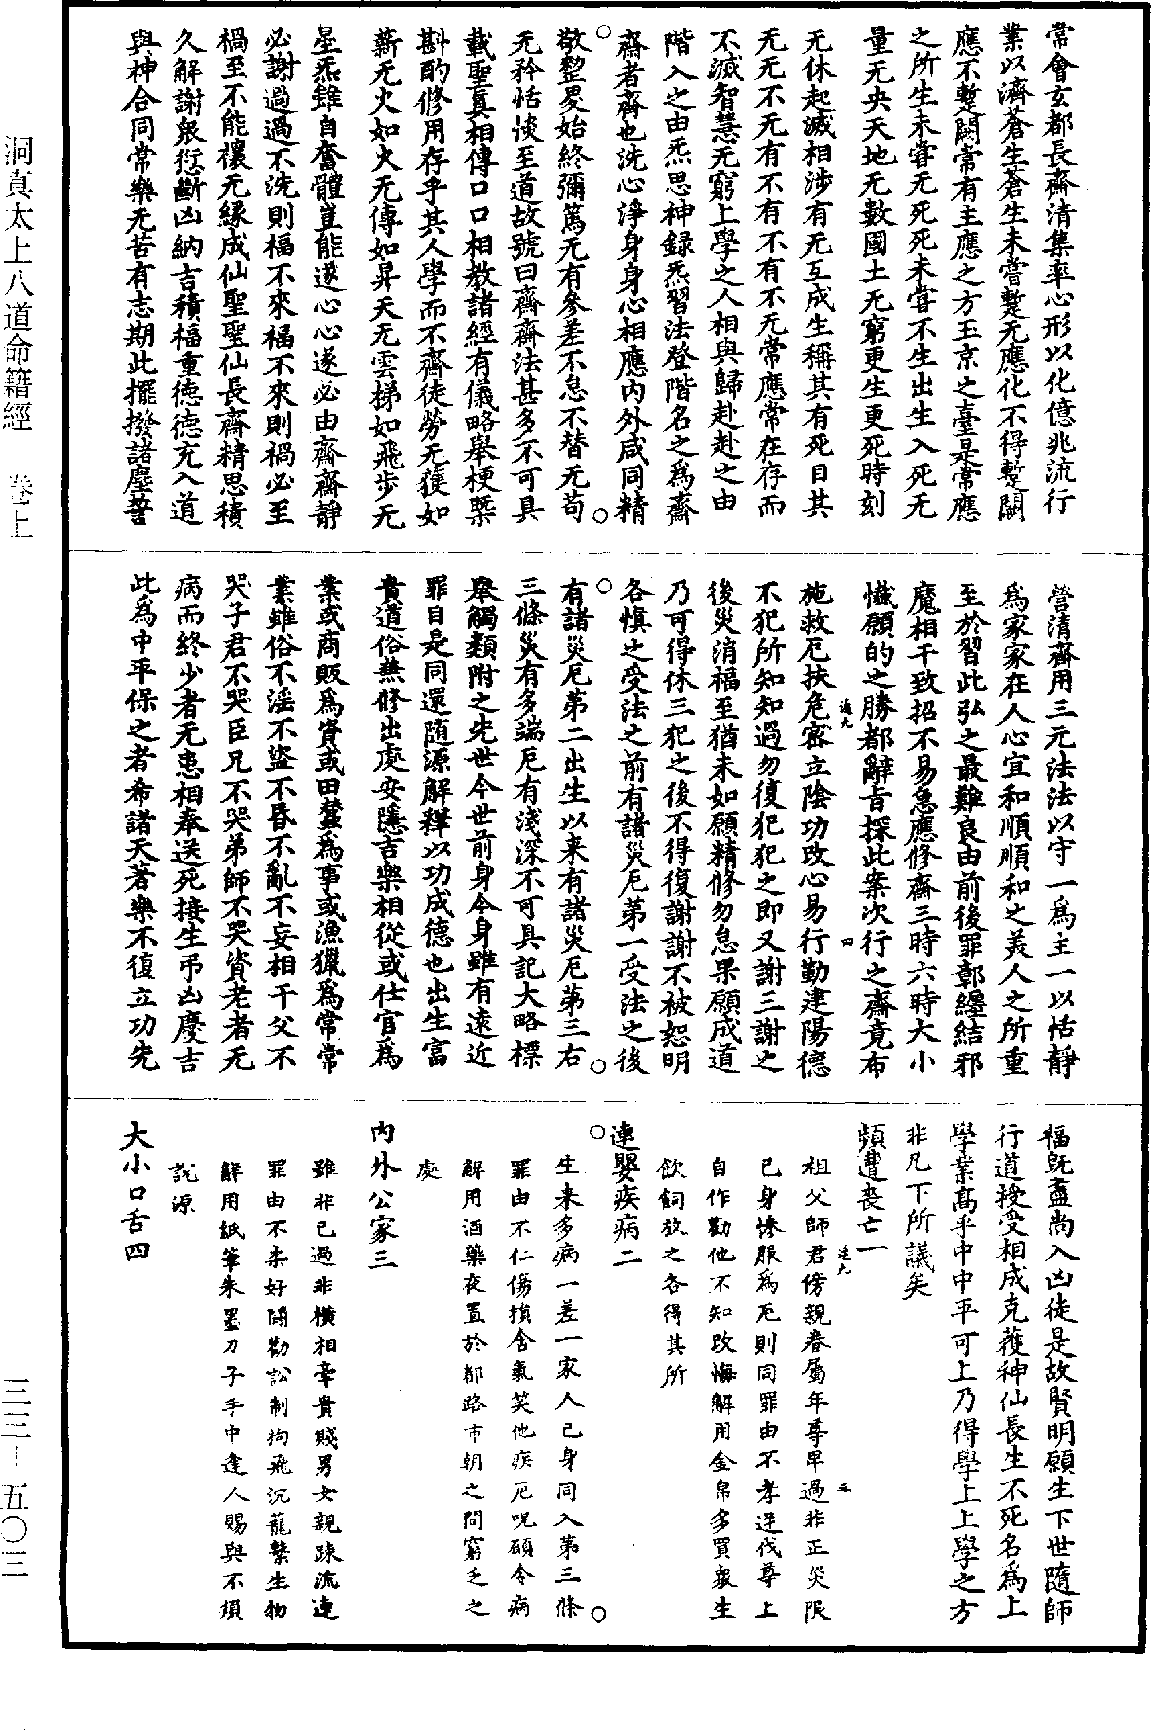 常會玄都長齋清集率心形以化億兆流行
業以濟蒼生蒼生未嘗蹔无應化不得蹔闕
應不蹔闕常有主應之方玉京之臺是常應
之所生未嘗无死死未嘗不生出生入死无
量无央天地无數國土无窮更生更死時刻
无休起滅相涉有无互成生稱其有死目其
无无不无有不有不有不无常應常在存而
不滅智慧无窮上學之人相與歸赴赴之由
階入之由炁思神錄炁習法登階名之為齋
齋者齊也洗心淨身身心相應內外咸同精
敬整晏始終彌篤无有參差不怠不替无苟
无矜恬惔至道故號曰齊齋法甚多不可具
載聖真相傳口口相教諸經有儀略舉梗槩
斟酌修用存乎其人學而不齋徒勞无獲如
薪无火如火无傳如昇天无雲梯如飛步无
星炁雖自奮體豈能遂心心遂必由齋齋靜
必謝過過不洗則福不來福不來則禍必至
禍至不能禳无緣成仙聖聖仙長齋精思積
久解謝衆愆斷凶納吉積福重德德充入道
與神合同常樂无苦有志期此擺撥諸塵誓
營清齋用三元法法以守一為主一以恬靜
為家家在人心宜和順順和之美人之所重
至於習此弘之最難良由前後罪鄣纏結邪
魔相干致招不易急應修齋三時六時大小
懺願的之勝都辭旨採此案次行之齋竟布
施救厄扶危密立陰功改心易行勤建陽德
不犯所知知過勿復犯犯之即又謝三謝之
後災消福至猶未如願精修勿怠果願成道
乃可得休三犯之後不得復謝謝不被恕明
各慎之受法之前有諸災厄第一受法之後
有諸災厄第二出生以来有諸災厄第三右
三條災有多端厄有淺深不可具記大略標
舉觸類附之先世今世前身今身雖有遠近
罪目是同還隨源解釋以功成德也出生富
貴道俗兼修出處安隱吉樂相從或仕官為
業或商販為資或田蠶為事或漁獵為常常
業雖俗不淫不盜不昏不亂不妄相干父不
哭子君不哭臣兄不哭弟師不哭資老者无
病而終少者无恚相奉送死接生弔凶慶吉
此為中平保之者希諸天著樂不復立功先
福旣盡尚入凶徒是故賢明願生下世隨師
行道授受相成克獲神仙長生不死名為上
學業高乎中中平可上乃得學上上學之方
非凡下所議矣
頻遭喪亡一
祖父師君傍親眷屬年尊卑過非正災限
己身慘服為厄則同罪由不孝逆伐尊上
自作勸他不知改悔解用金帛多買衆生
飲飼放之各得其所
連嬰疾病二
生来多病一差一家人己身同入第三條
罪由不仁傷損含氣笑他疾厄呪願令病
解用酒藥夜置於都路市朝之間窮乏之
處
內外公家三
雖非己過非橫相牽貴賤男女親疎流連
罪由不柔好鬪勸訟制拘飛沉籠繫生物
解用紙筆朱墨刀子手中逢人賜與不須
說源
大小口舌四
洞真太上八道命籍經 卷上
三三–五〇三